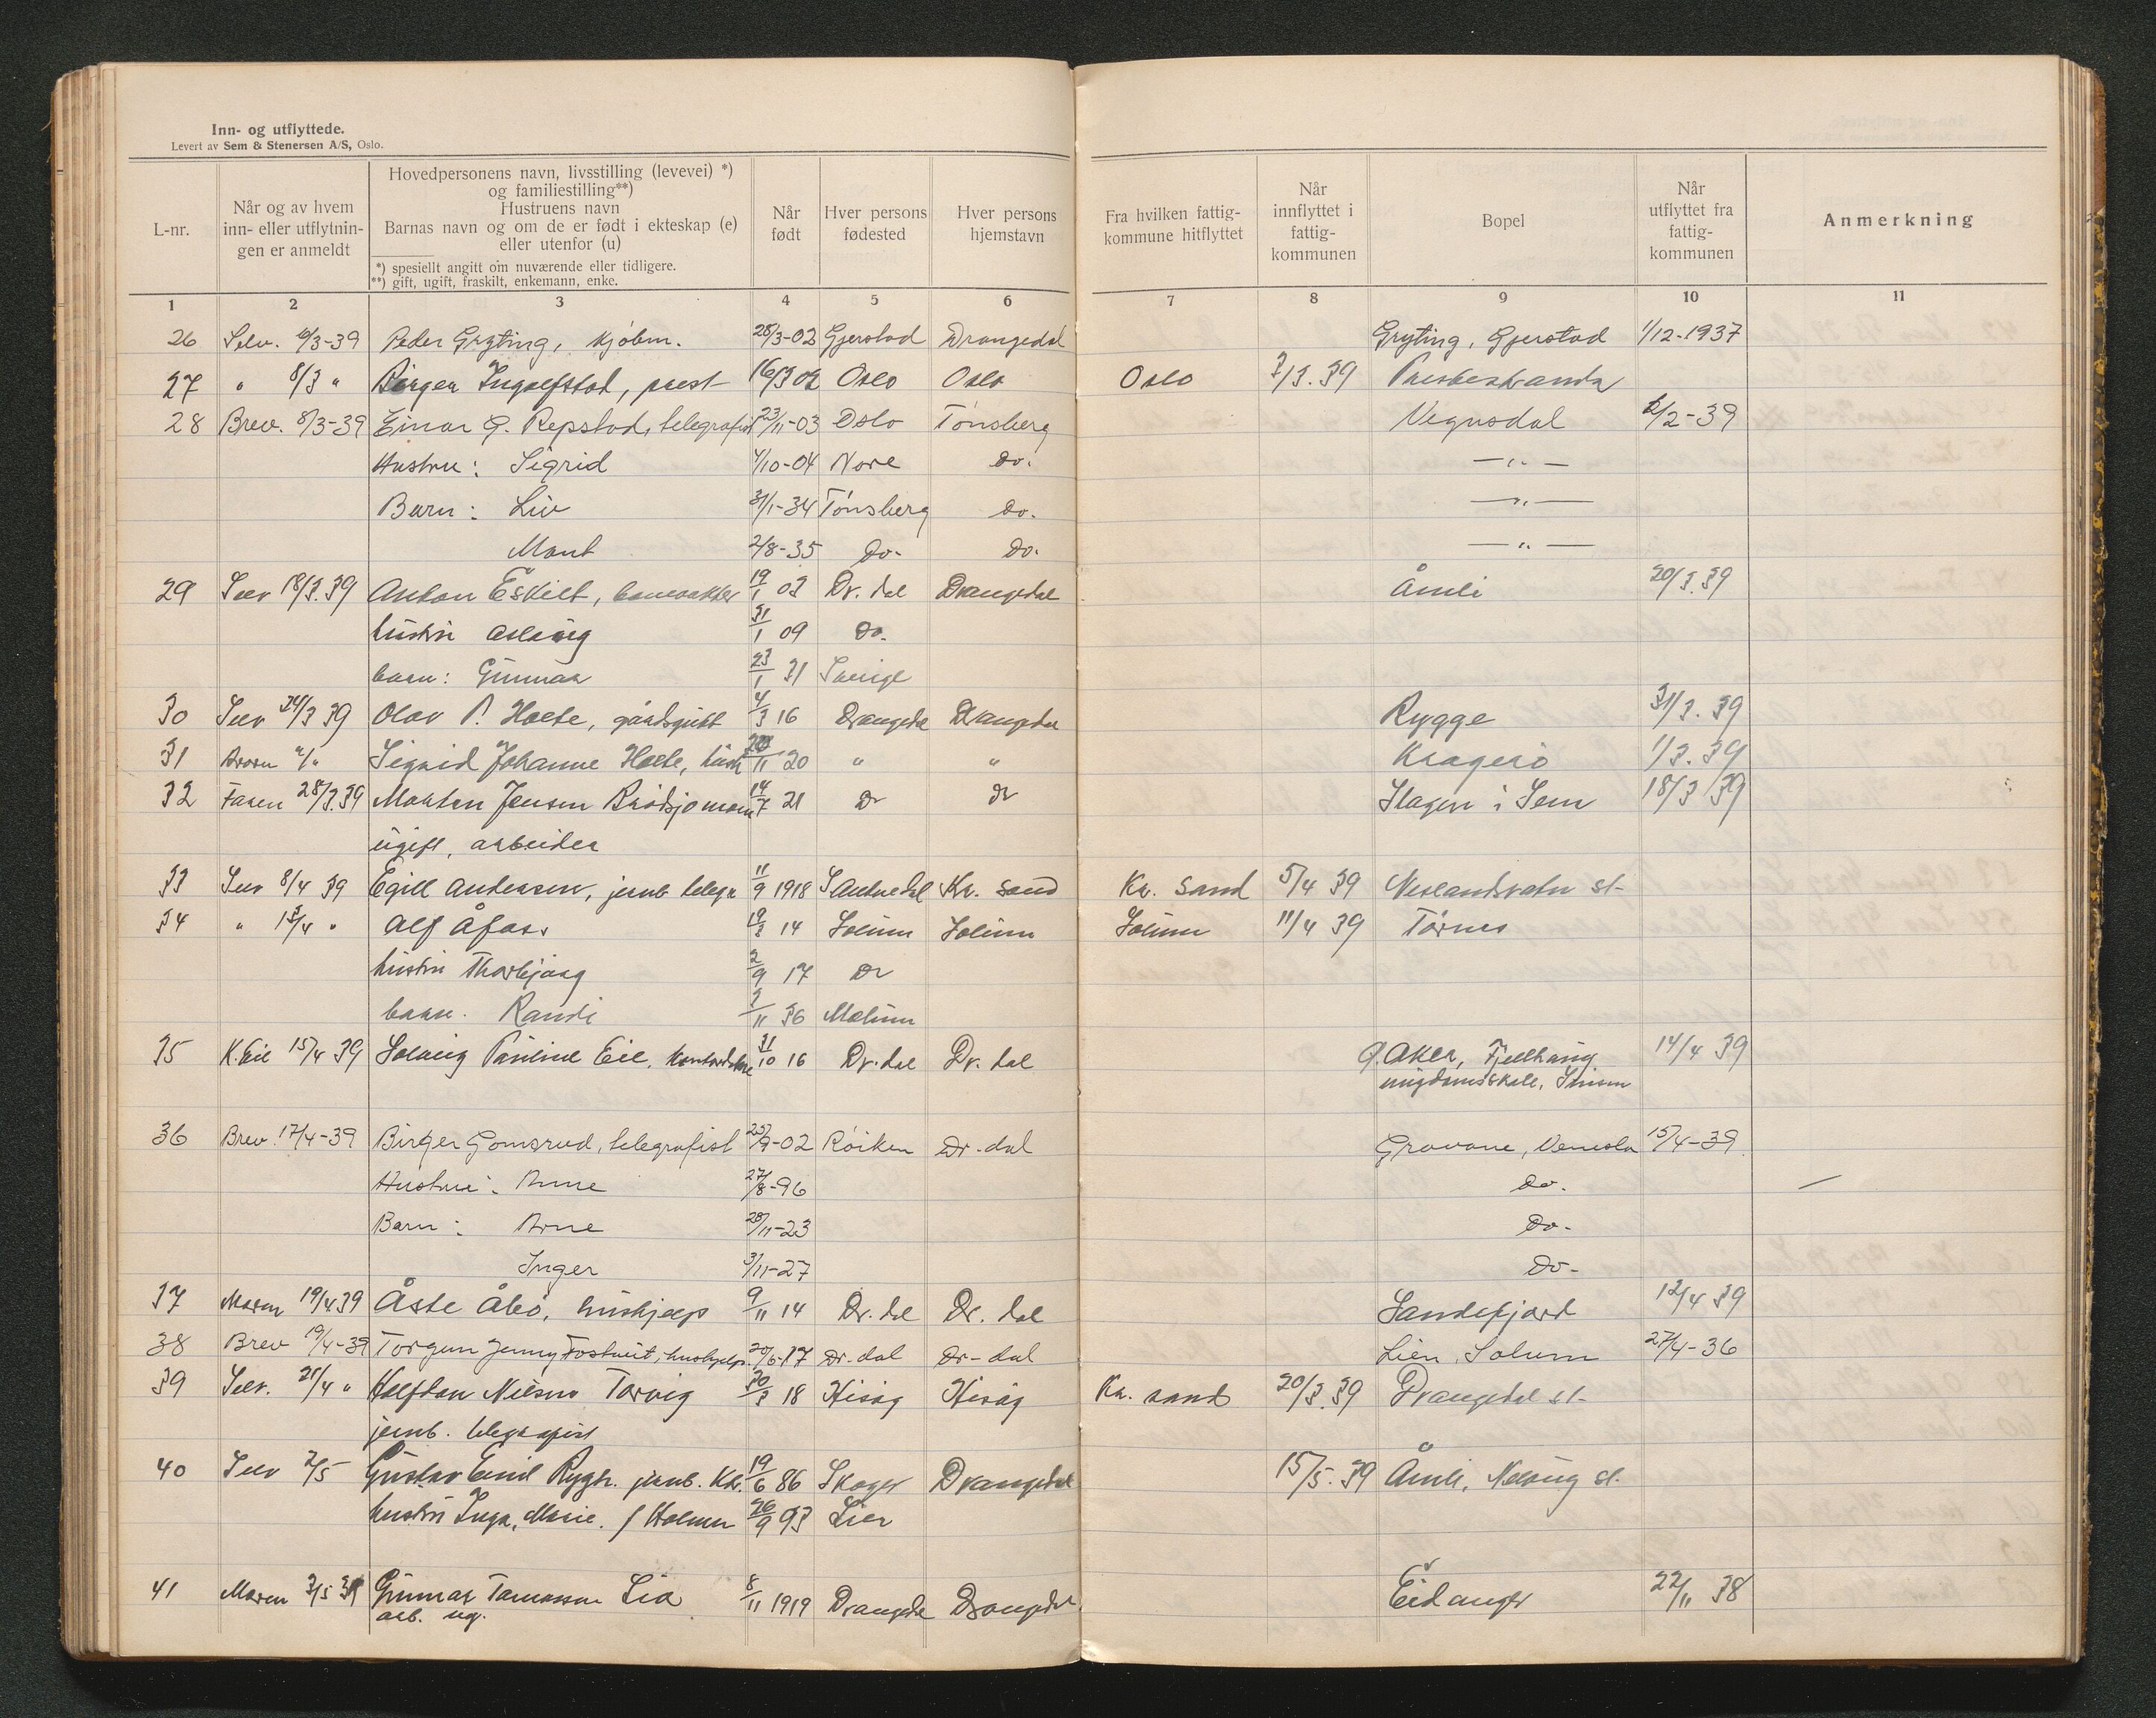 Inn- og utflyttede.
Levert av Sem & Stenersen A/S, Oslo.
L-nr.
Når og av hvem
inn- eller utflytnin-
gen er anmeldt
Hovedpersonens navn, livsstilling (levevei) *)
og familiestilling**)
Hustruens navn
Barnas navn og om de er født i ekteskap (e)
eller utenfor (u)
*) spesiellt angitt om nuværende eller tidligere.
**) gift, ugift, fraskilt, enkemann, enke.
Når
født
Hver persons
fødested
Hver persons
hjemstavn
Fra hvilken fattig-
kommune hitflyttet
Når
innflyttet i
fattig-
kommunen
Bopel
Når
utflyttet fra
fattig-
kommunen
Anmerkning
1 2 3 4 5 6 7 8 9 10 11
26 Selv. /3-39 Peder Gryting, kjøbm. 28/3-02 Gjerstad Drangedal Gryting, Gjerstad 1/12-1937
27 " 8/3 " Birger Ingolfstad, prest 16/3 02 Oslo Oslo Oslo 7/3.39 Prestestranda
28 Brev. 8/3-39 Einar G. Repstad, telegrafist 23/11-03 Oslo Tønsberg Vegusdal /2-39
Hustru: Sigrid /10-04 Nore do. —"—
Barn: Liv 31/1-34 Tønsberg do. —"—
2/8-35 do- do. —"—
29 Selv 18/3.39 Anton Eskilt, banevakter 19/1 03 Dr. dal Drangedal Åmli 20/3.39
hustru Aslaug 31/1 09 Do.
barn: Gunnar 23/1 31 Sverige
30 Selv 24/3 39 Olav P. Holte, gårdsgutt 4/3 16 Drangedal Drangedal Rygge 31/3.39
31 Broren "/" Sigrid Johanne Holte, hush. /11 20 " " Kragerø 1/3.39
32 Faren 28/3.39 Morten Jensen Brødsjømoen 14/7 21 Dr Dr Slagen i Sem 18/3 39
ugift, arbeider
33 Selv 8/4 39 Egill Andersen, jernb telegr 11/9 1918 S Audnedal Kr. sand Kr. Sand 5/4 39 Neslandsvatn st-
34 " 13/4 " Alf Åfoss 19/3 14 Solum Solum Solum 11/4 39 Tørnes
hustru Thorbjørg 2/9 17 Dr
barn. Randi /11 36 Melum
35 K. Eie 15/4 39 Solveig Pauline Eie, kontordame 31/10 16 Dr. dal Dr. dal Ø. Aker, Fjellhaug 14/4 39
ungdomsskole, Sinsen
36 Brev. 17/4-39 Birger Gomsrud, telegrafist 23/9-02 Røiken Dr. dal Grovane, Vennesla 15/4-39
Hustru: Anne 27/8-96 do.
Barn: Arne 28/11-23 do-
Inger 3/11-27 do-
37 Moren 19/4 39 Åste Åbø, hushjelp 9/11 14 Dr. dal Dr. dal Sandefjord 12/4 39
38 Brev 19/4-39 Torgun Jenny Tostveit, hushjelp. 20/6-17 Dr. dal Dr- dal Lien, Solum 27/4-36
39 Selv. 21/4 " Halfdan Nilsen Torvig 30/3 18 Hisøy Hisøy Kr. sand 20/3.39 Drangedal st-
jernb. telegrafist
40 Selv 2/5 Gustav Emil Rygh. jernb. 19/6 86 Skoger Drangedal 15/5.39 Åmli, Nelaug st.
hustru Inga, Marie. f Holmen 26/9 93 Lier
41 Moren 3/5 39 Gunnar Tomassen Lia 8/11 1919 Drangedal Drangedal Eidanger 22/11 38
arb. ug.